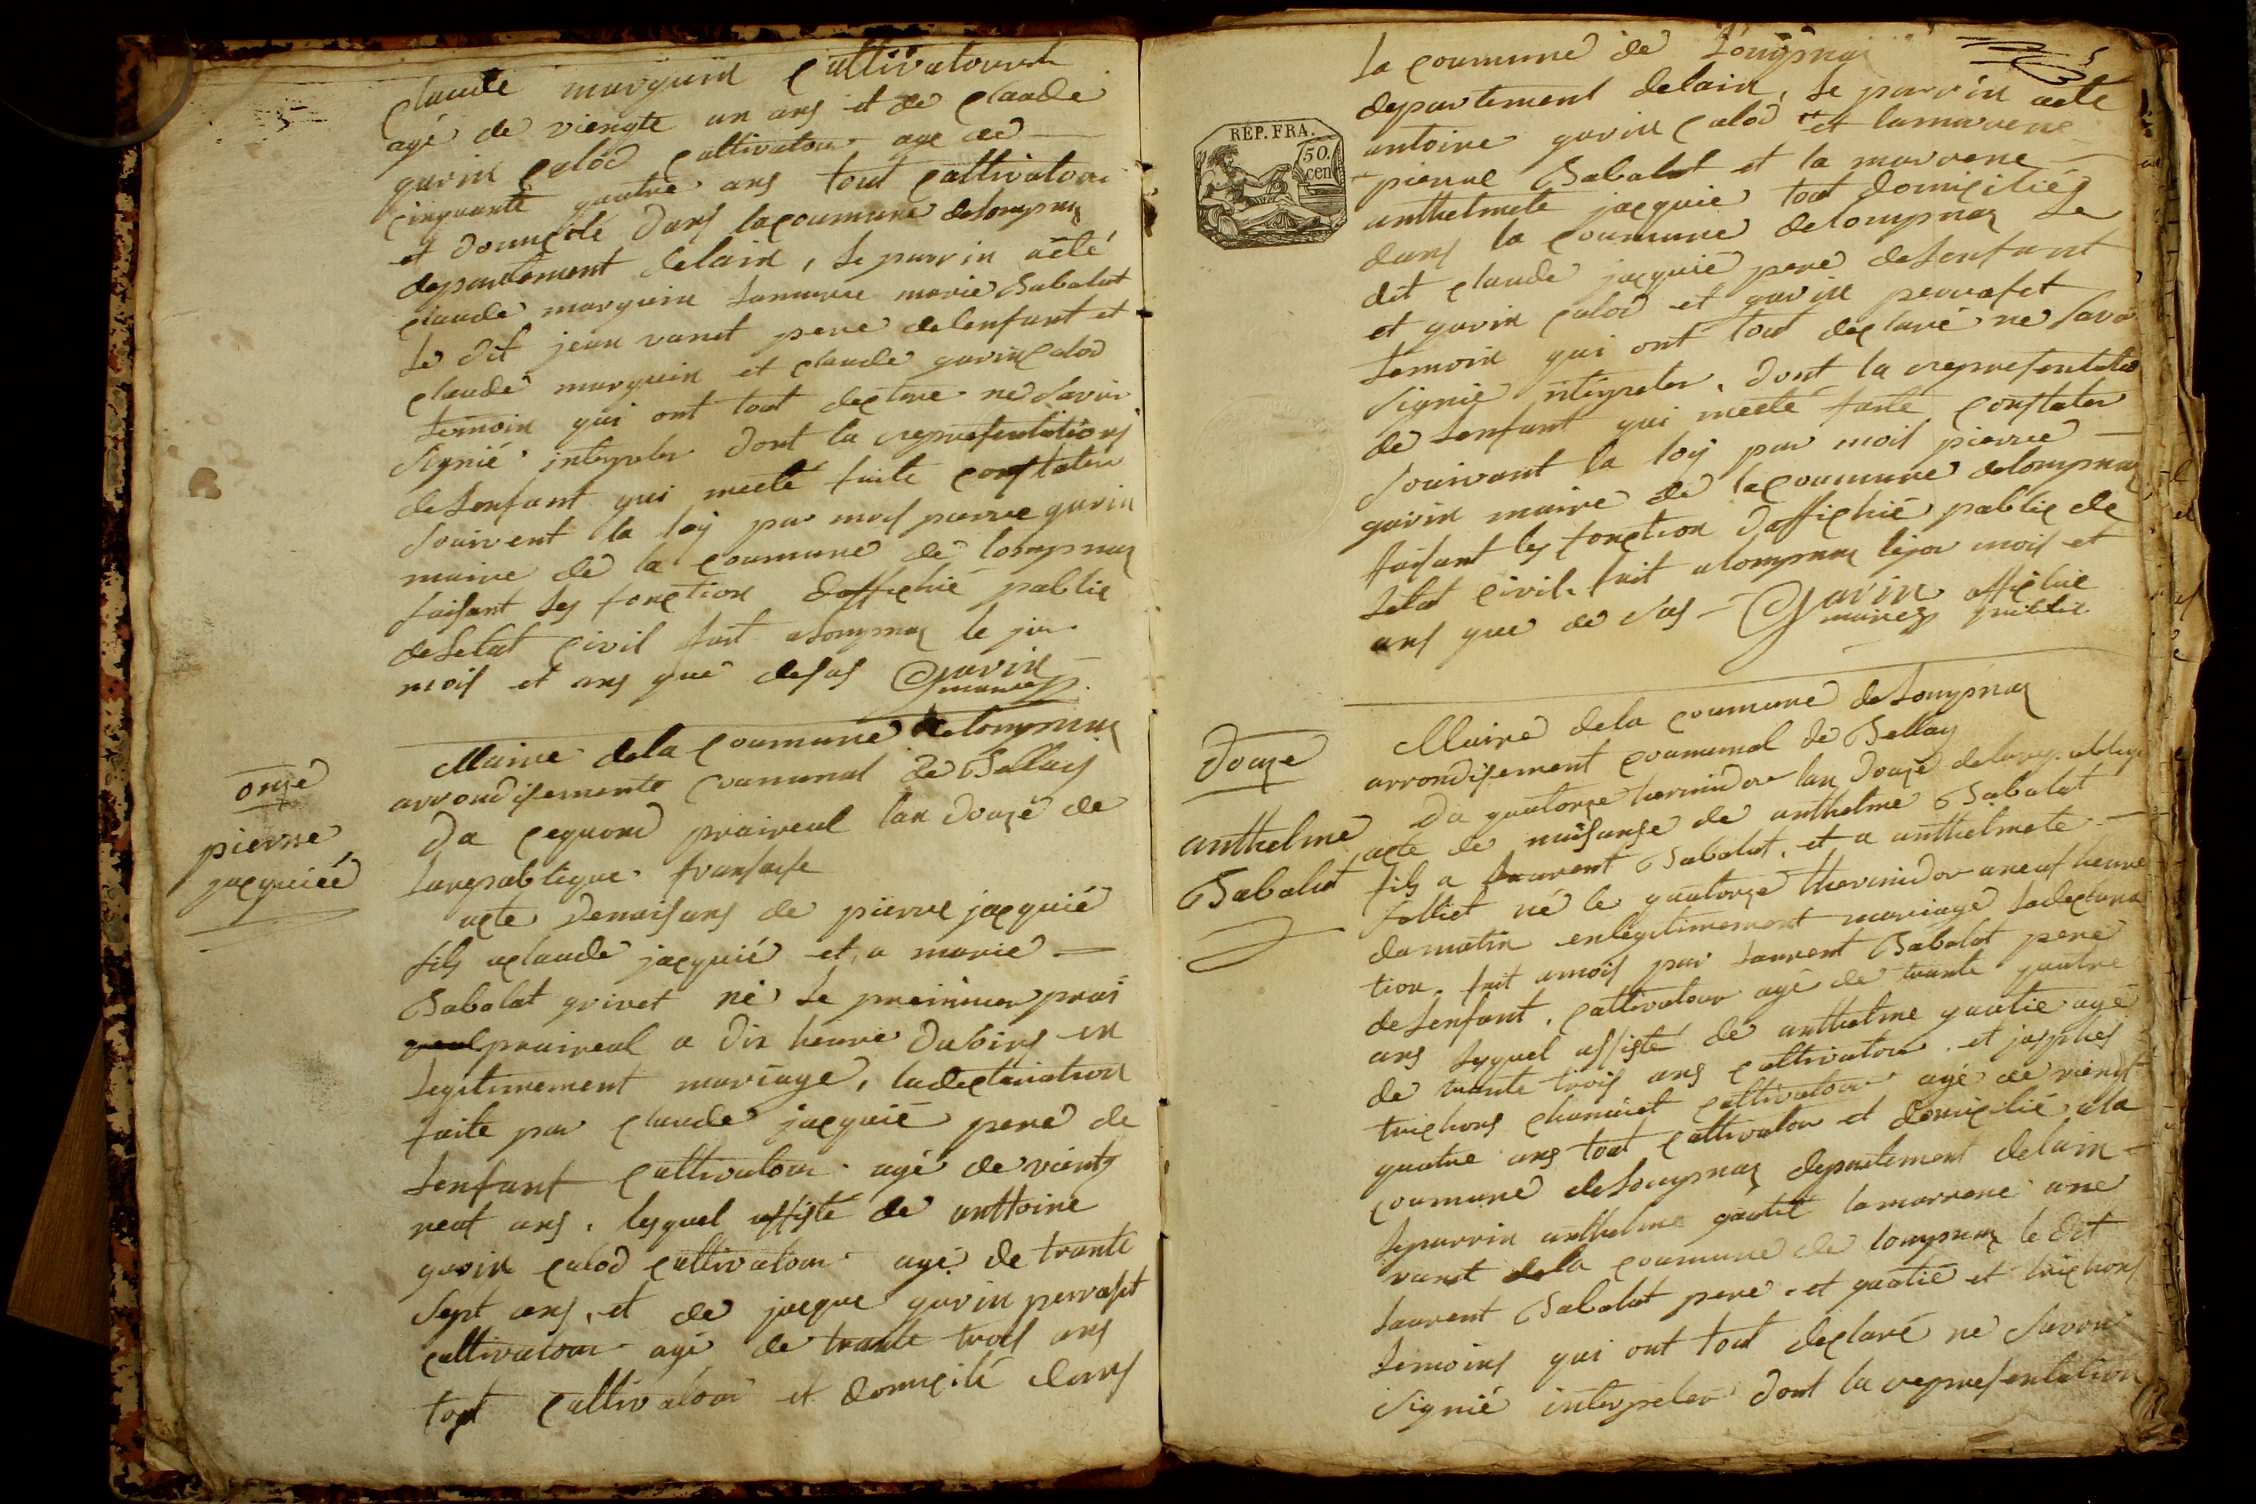 claude marguin cultivatour
agé de viengte un ans et de claude
gurin calod cultivatour age de
cinquante quatre ans tout cultivatour
et domicile dans la coumune de lompnaz
departement delain, le parrin aété
claude marguin lamarre marie Babolat
le dit jean vanet pere delenfant et
claude marguin et claude gurin calod
temoin qui ont tout declare ne savoir
signié interpeler dont la representations
de lenfant qui meeté faite constater
souivent la loy par mois pierre gurin
maire de la coumune de lompnaz
faisant les fonction d'affichié public
deletat civil fait alompnaz le jour
mois et ans que desus Gurin
maire
onze
pierre
jacquiéé
Maire dela coumune de lompnaz
arrondisemente coumunal de Bellay
Du cequond praireal lan douze de
la republique fransaise
acte denaisans de pierre jacquié
fils aclaude jacquié et a marie
Babolat grivet né le preimier prai
real praireal a dix heure dusoirs en
legitimement mariage, ladeclaration
faite par claude jacquié pere de
lenfant cultivatour agé de vientz
neuf ans. lesquel assisté de anttoine
gurin calod cultivatour agé de trante
sept ans, et de jacque gurin perraset
cultivatour agé de trante trois ans
tout cultivatour et domicilé dans
la coumune de Lompnaz
departement delain, le parrin aété
antoine gurin calod et lamarene
pierre Babolat et la marrene
anthelmete jacquié tout domiciliés
dans la coumune de lompnaz Le
dit claude jacquié pere delenfant
et gurin calod et gurin perraset
temoin qui ont tout declaré ne savoir
signié interpeler, dont la representatio
de lenfant qui meeté faite constater
souivant la loy par mois pierre
gurin maire de la coumune de lompnaz
faisant les fonction d'affichié public de
letat civil. fait alompnaz lejou mois et
ans que de sus Gurin affichié
maire public
RÉP. FRA.
50.
cen
douze
anthelme
Babolat
Maire dela coumune de Lompnaz
arrondisement coumunal de Bellay
Du quatorze thermidor lan douze delarepublique
acte de naisanse de anthelme Babolat
fils a laurent Babolat, et a anthelmete
folliet né le quatorze thermidor aneuf heure
du matin enlegitimement mariage ladeclara
tion. fait amois par laurent Babolat pere
de lenfant, cultivatour agé de trante quatre
ans lesquel assisté de anthelme guatié agé
de trante trois ans cultivatour et josphes
trichons chaminet cultivatour agé de vienst
quatre ans tout cultivatour et domicilié ala
coumune de Lompnaz departement delain
leparrin anthelme guatié lamarrene ane
vanet dela coumune de lompnaz le dit
laurent Babolat pere et guatié et trichons
temoins qui ont tout declaré ne savoir
signié interpeler dont la representation